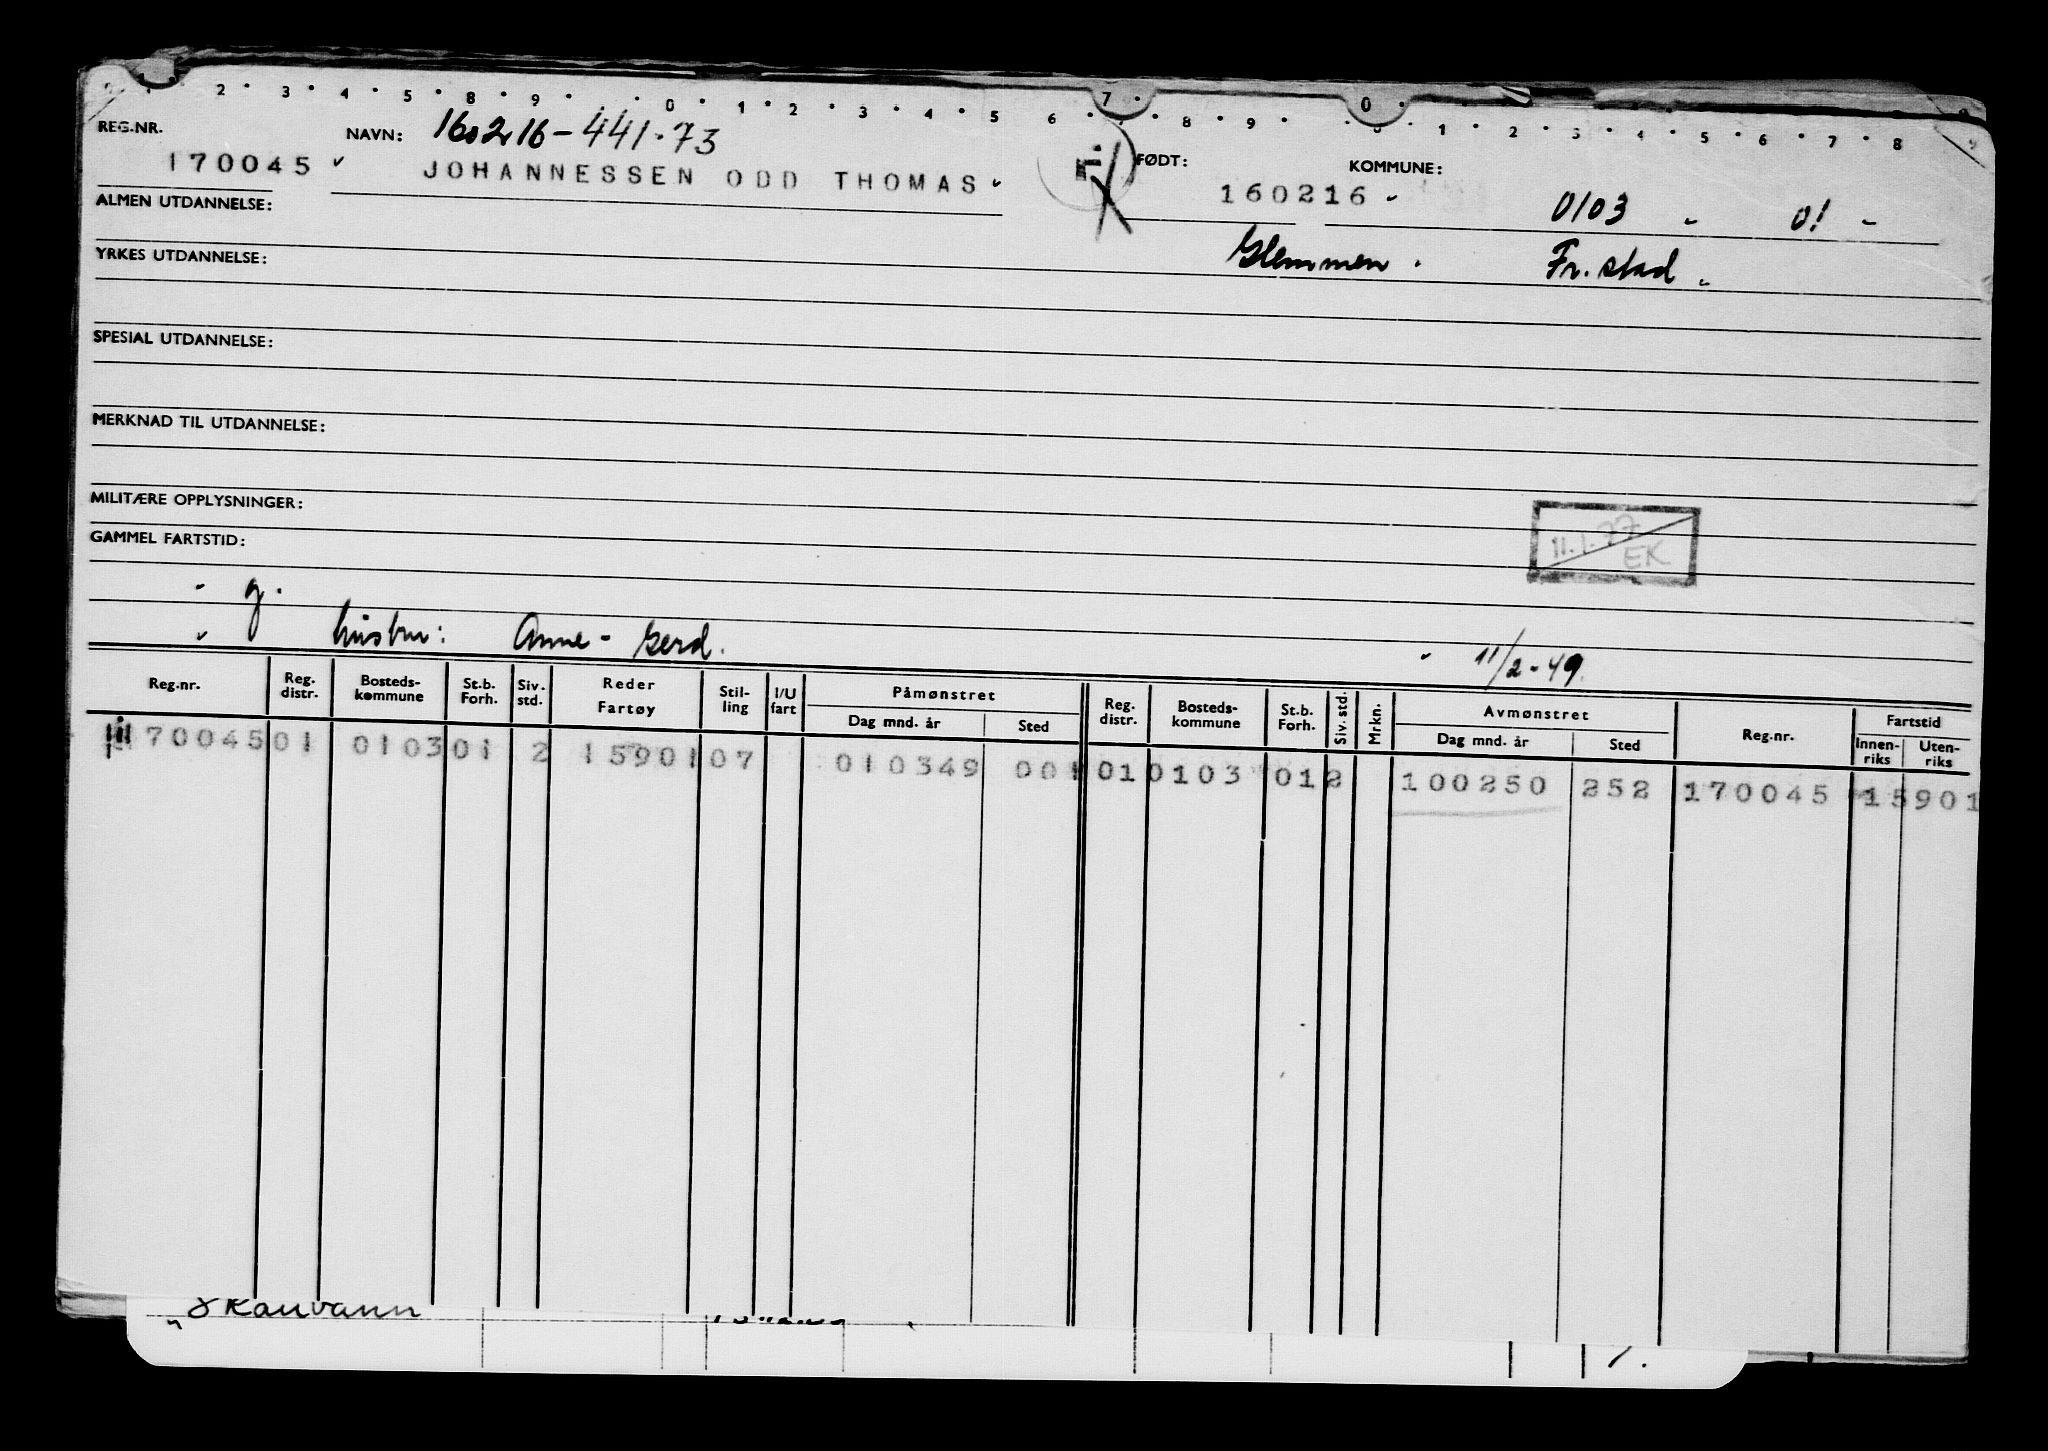 2 3 4 5 8 9 0 1 2 3 4 5 6 7 8 9 0 1 2 3 4 5 6 7 8 9
REG.NR. NAVN: 160216-441.73 FØDT: KOMMUNE:
170045 JOHANNESSEN ODD THOMAS 160216 0103 01
ALMEN UTDANNELSE:
Glemmen. Fr.stad
YRKES UTDANNELSE:
SPESIAL UTDANNELSE:
MERKNAD TIL UTDANNELSE:
MILITÆRE OPPLYSNINGER:
11.1.77
EK
GAMMEL FARTSTID:
g.
hustru: Anne-Gerd. 11/2-49.
Reg.nr. Reg. distr. Bosteds-kommune St.b. Forh. Siv. std. Reder Fartøy Stil-ling I/U fart Påmønstret Dag mnd. år Sted Reg. distr. Bosteds-kommune St.b. Forh. Siv. std. Mrkn. Avmønstret Dag mnd. år Sted Reg.nr. Fartstid Innen-riks Uten-riks
170045 01 0103 01 2 15901 07 010349 001 01 0103 01 2 100250 252 170045 15901
Skauvann